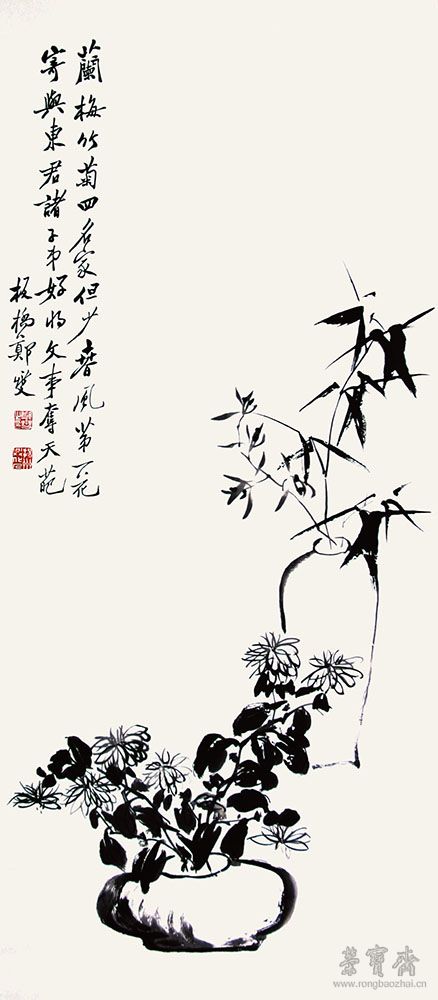 蘭梅竹菊四名家但少春風第一花
寄與東君諸子弟好將文事奪天葩
板橋鄭燮
榮寶齋
www.rongbaozhai.cn